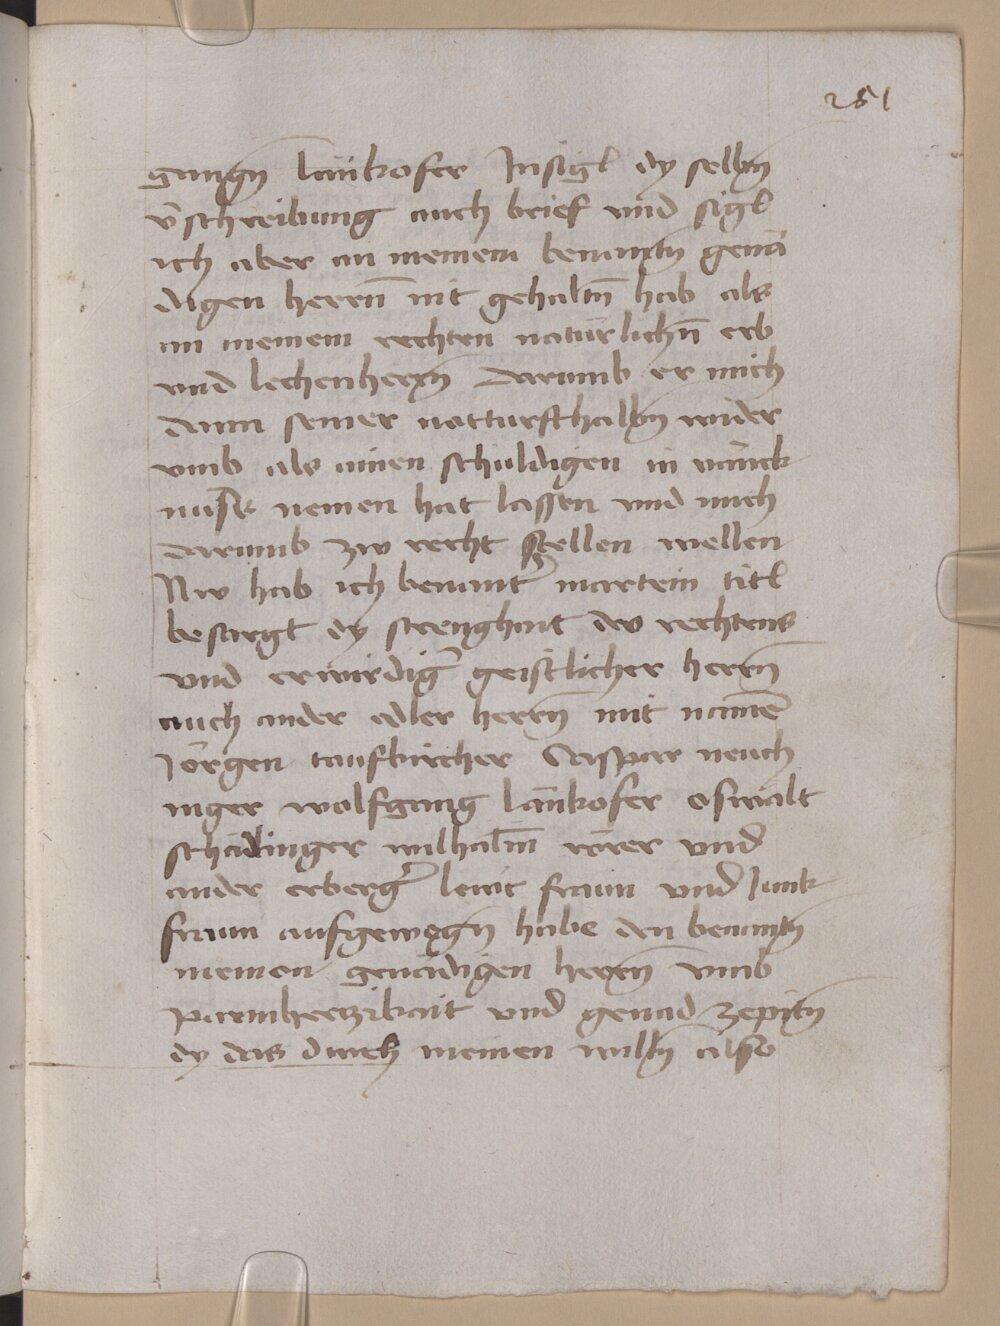 251
gangn̄ läukofer Insigl dy selbn̄
v̄schreibung auch brief vnd sigl
ich aber an meinem benantn̄ genä
digen herrn̄ nit gehaltn̄ hab als
an meinem rechten natürlichn̄ erb
vnd lechenherrn̄ Darumb er mich
dann seiner notturfthalbn̄ wider
vmb als ainen schuldigen in vänck
nuss nemen hat lassen vnd mich
darumb zw recht stellen wellen
Nw hab ich benant̄ martein titl
besargt dy strenghait des rechtens
vnd erwirdiḡ geistlicher herrn̄
auch ander edler herrn̄ mit namē
Jörgen taufkircher Caspar neuch
inger wolfgang läukofer oswalt
schädlinger wilhalm̄ rörer vnd
ander erberḡ lewt frawn vnd Junk
frawn aufgewegn̄ habe den benantn̄
meinen genädigen herrn̄ vmb
parmherzikait vnd genad zepitn̄
dy das durch meinen willn̄ also